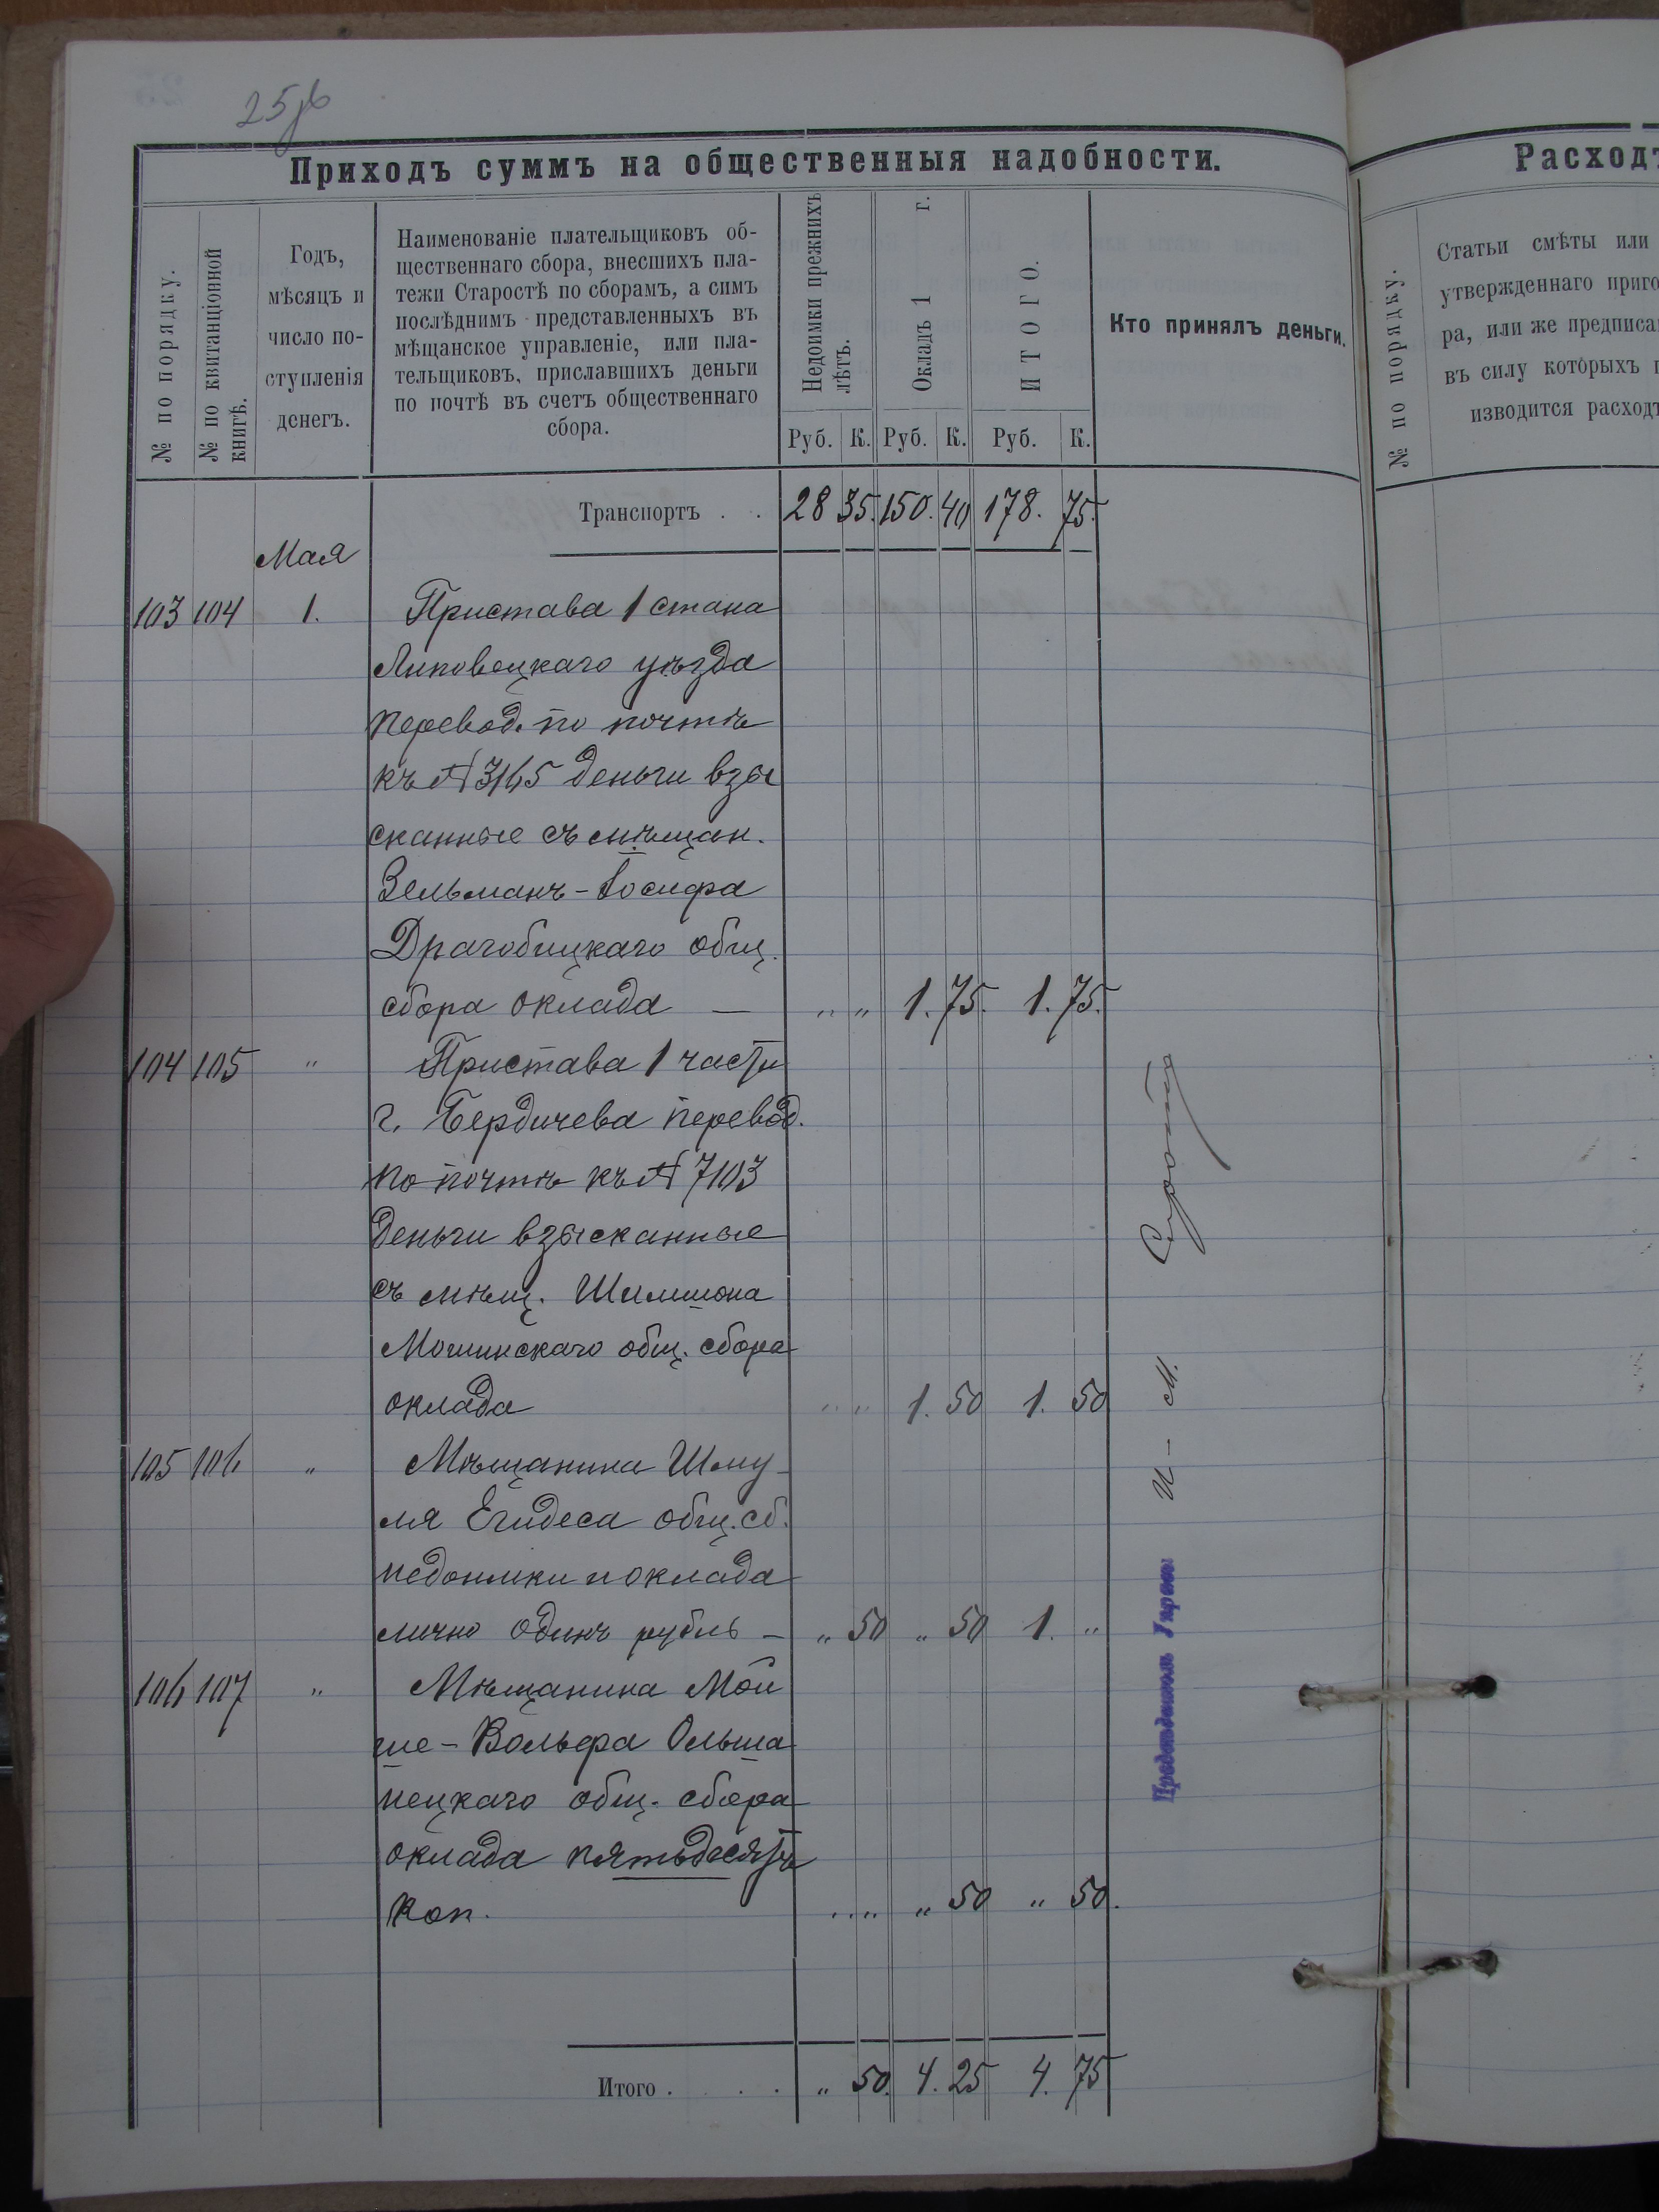 25 об
Приходъ суммъ на общественныя надобности.
№ по порядку.
№ по квитанціонной
книгѣ.
Годъ,
мѣсяцъ и
число по-
ступленія
денегъ.
Наименованіе плательщиковъ об-
щественнаго сбора, внесшихъ пла-
тежи Старостѣ по сборамъ, а симъ
послѣднимъ представленныхъ въ
мѣщанское управленіе, или пла-
тельщиковъ, приславшихъ деньги
по почтѣ въ счетъ общественнаго
сбора.
Недоимки прежнихъ
лѣтъ.
Окладъ 1 г.
ИТОГО.
Кто принялъ деньги.
Руб. К. Руб. К. Руб. К.
Транспортъ . . 28 35. 150. 40 178. 75.
Мая
103 104 1. Пристава 1 стана
Липовецкаго уѣзда
перевод. по почтѣ
къ № 3165 деньги взы
сканные съ мѣщан.
Зельманъ-Іосифа
Драгобицкаго общ.
сбора оклада — „ „ 1. 75. 1. 75.
104 105 „ Пристава 1 части
г. Бердичева перевод.
по почтѣ къ № 7103
деньги взысканные
съ мѣщ. Шимшона
Мошинскаго общ. сбора
оклада „ „ 1. 50 1. 50
105 106 „ Мѣщанина Шму-
ля Егидеса общ. сб.
недоимки и оклада
лично одинъ рубль — „ 50 „ 50 1. „
106 107 „ Мѣщанина Мой
ше-Вольфа Ольша
нецкаго общ. сбора
оклада пятьдесятъ
коп. „ „ „ 50 „ 50.
Итого . . . . „ 50. 4. 25 4. 75
И - М.
Расходъ
№ по порядку.
Статьи смѣты или
утвержденнаго приго
ра, или же предписа
въ силу которыхъ п
изводится расходъ